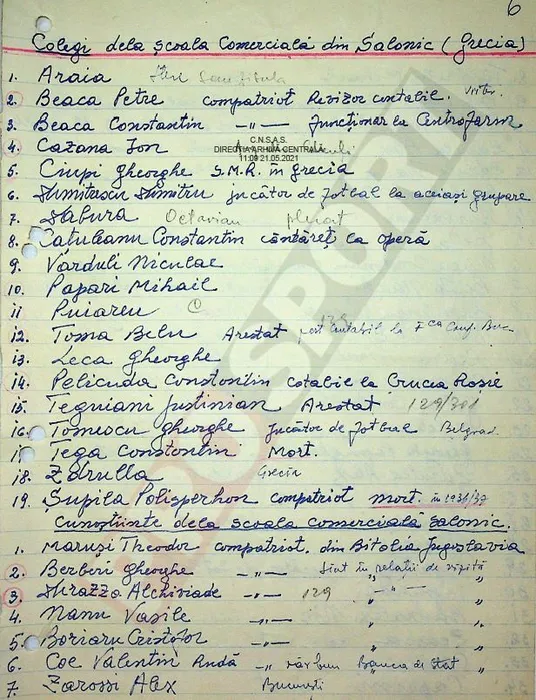 6
Colegi dela școala Comercială din Salonic (Grecia)
1. Araia
2. Beaca Petre compatriot Revizor contabil.
3. Beaca Constantin -"- funcționar la Centrofarm
C.N.S.A.S.
4. Cazana Ion
DIRECȚIA ARHIVA CENTRALĂ
11:09 21.05.2021
5. Ciupi Gheorghe S.M.R. în Grecia
6. Dumitrescu Dumitru jucător de fotbal la aceiași grupare
7. Octavian plecat
8. Catuleanu Constantin cântăreț la operă
9. Varduli Niculae
10. Papari Mihail
11 C
12. Toma Belu Arestat
13. Leca Gheorghe
14. Pelicuda Constantin cotabil la Crucea Roșie
15. Teguiani Justinian Arestat
16. Tomescu Gheorghe Jucător de fotbal Belgrad
17 Tega Constantin Mort.
18. Zdrulla Grecia
19. Șupila Polisperhon compatriot mort. în 1936/37
Cunoștiințe dela școala comercială Salonic.
1. Maruși Theodor compatriot din Bitolia Jugoslavia
2. Berberi Gheorghe -"- Sînt în relații de vizită
3. Alchiviade - 129 -"- "
4. Nanu Vasile -"- " "
5. Borraru Cristofor -"- " "
6. Coe Valentin Rudă -"- văr bun Banca de Stat "
7. Zarossi Alex București
PROSPORT